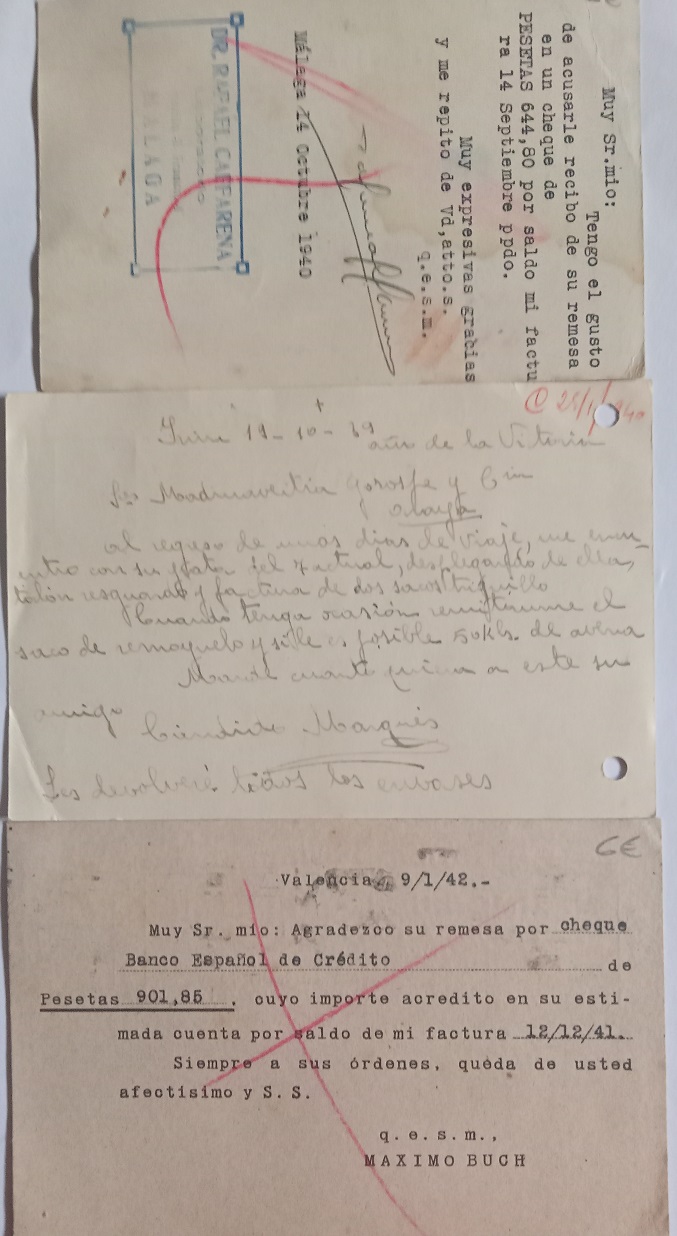 Muy Sr.mio:
Tengo el gusto
de acusarle recibo de su remesa
en un cheque de
PESETAS 644,80 por saldo mi factu
ra 14 Septiembre ppdo.
Muy expresivas gracias
y me repito de Vd,atto.s.
q.e.s.m.
Málaga 14 Octubre 1940
DR. RAFAEL CAFFARENA
MALAGA
19-10-39
año de la Vitoria
Gorospe y Cia
al regreso de unos dias de viaje, me encuen
tro con su grata del 7 actual, desplegando de ella,
talón resguardo y factura de dos sacos triguillo
Cuando tenga ocasión remitirume el
saco de remoyuelo y si le es posible 50 Kls. de avena
Mande cuanto quiera a este su
amigo
Cándido Marqués
Les devolveré todos los envases
CE
Valencia 9/1/42.-
Muy Sr. mío: Agradezco su remesa por cheque
Banco Español de Crédito de
Pesetas 901,85 , cuyo importe acredito en su esti-
mada cuenta por saldo de mi factura 12/12/41.
Siempre a sus órdenes, queda de usted
afectísimo y S. S.
q. e. s. m.,
MAXIMO BUCH